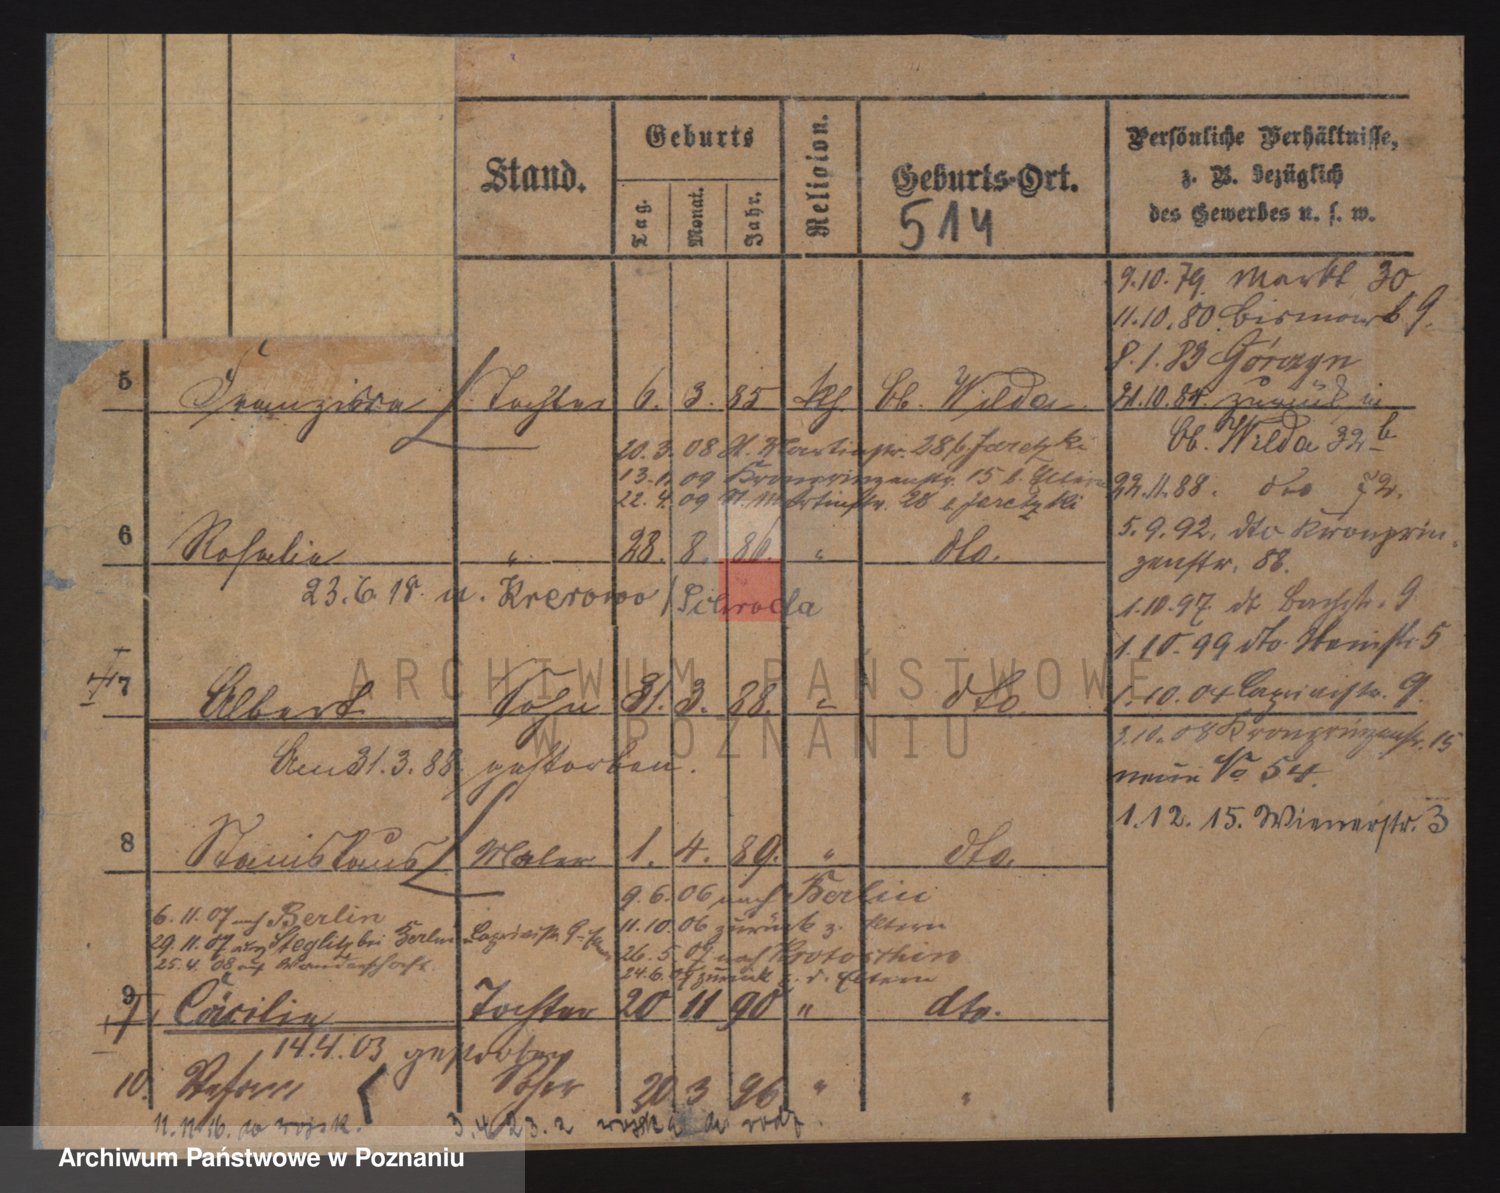 Stand.
Geburts
Tag.
Monat.
Jahr.
Religion.
Geburts-Ort.
514
Persönliche Verhältnisse,
z. B. bezüglich
des Gewerbes u. s. w.
9.10.79. Markt 30
11.10.80. Bismark 9.
8.1.83 Górczyn
21.10.84. zurück in
Ob. Wilda 32b
22.11.88. dto 72.
5.9.92. dto Kronprin-
zenstr. 88.
1.10.97 9
1.10.99 dto. 5
1.10.04 9.
3.10.08 Kronprinzenstr. 15
neue No 54.
1.12.15. Wienerstr. 3
5 Franziska Tochter 6. 3. 85 kh. Ob. Wilda
20.3.08 St. Martinstr. 28 b. Jaretzki
13.1.09 Kronprinzenstr. 15 b. Eltern
22.4.09 St. Martinstr. 28 b. Jaretzki
6 Rosalie " 28. 8. 86. " dto.
23.6.18. n. Krerowo / Schroda
7 Albert Sohn 31. 3. 88. " dto.
Am 31.3.88 gestorben.
8 Stanislaus Maler 1. 4. 89. " dto.
9.6.06 nach Berlin
11.10.06 zurück z. Eltern
26.5.07 nach Krotoschin
24.6.07 zurück z. d. Eltern
6.11.07 nach Berlin
29.11.07 nach Steglitz bei Berlin
25.4.08 auf Wanderschaft.
9 Cäcilie Tochter 20 11 90 " dto.
14.4.03 gestorben
10. Stefan Sohn 20 3 96 " "
11.11.16. do wojsk.
3.4.23. z wojska do rodz.
ARCHIWUM PAŃSTWOWE
W POZNANIU
Archiwum Państwowe w Poznaniu